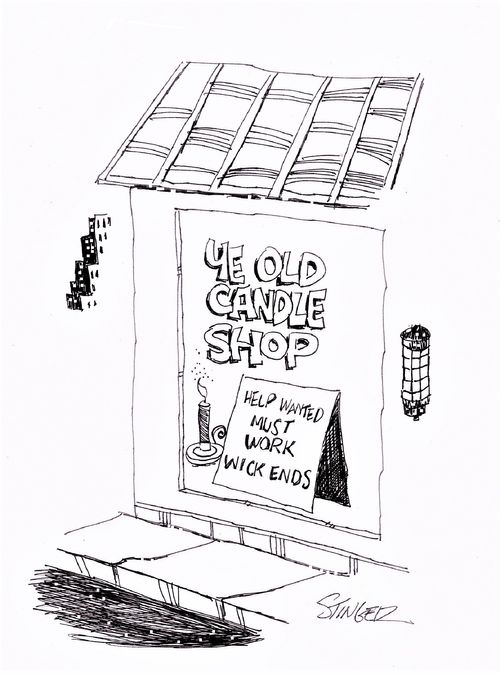 YE OLD
CANDLE
SHOP
HELP WANTED
MUST
WORK
WICK ENDS
STINGER